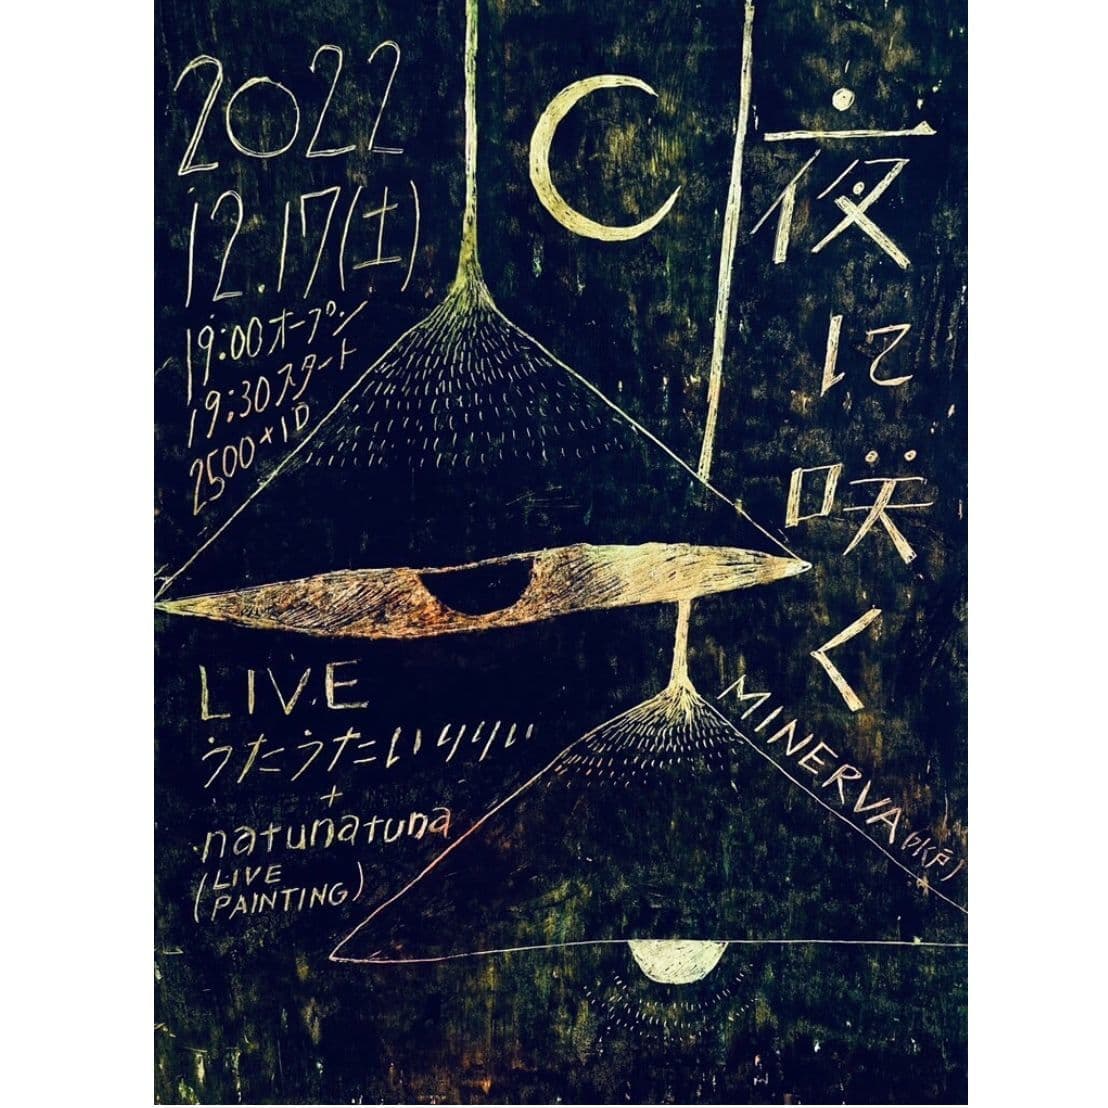 夜に咲く
2022
12.17(土)
19:00オープン
19:30スタート
2500+1D
LIVE
うたうたいりりい
+
natunatuna
(LIVE
PAINTING)
MINERVA(水戸)